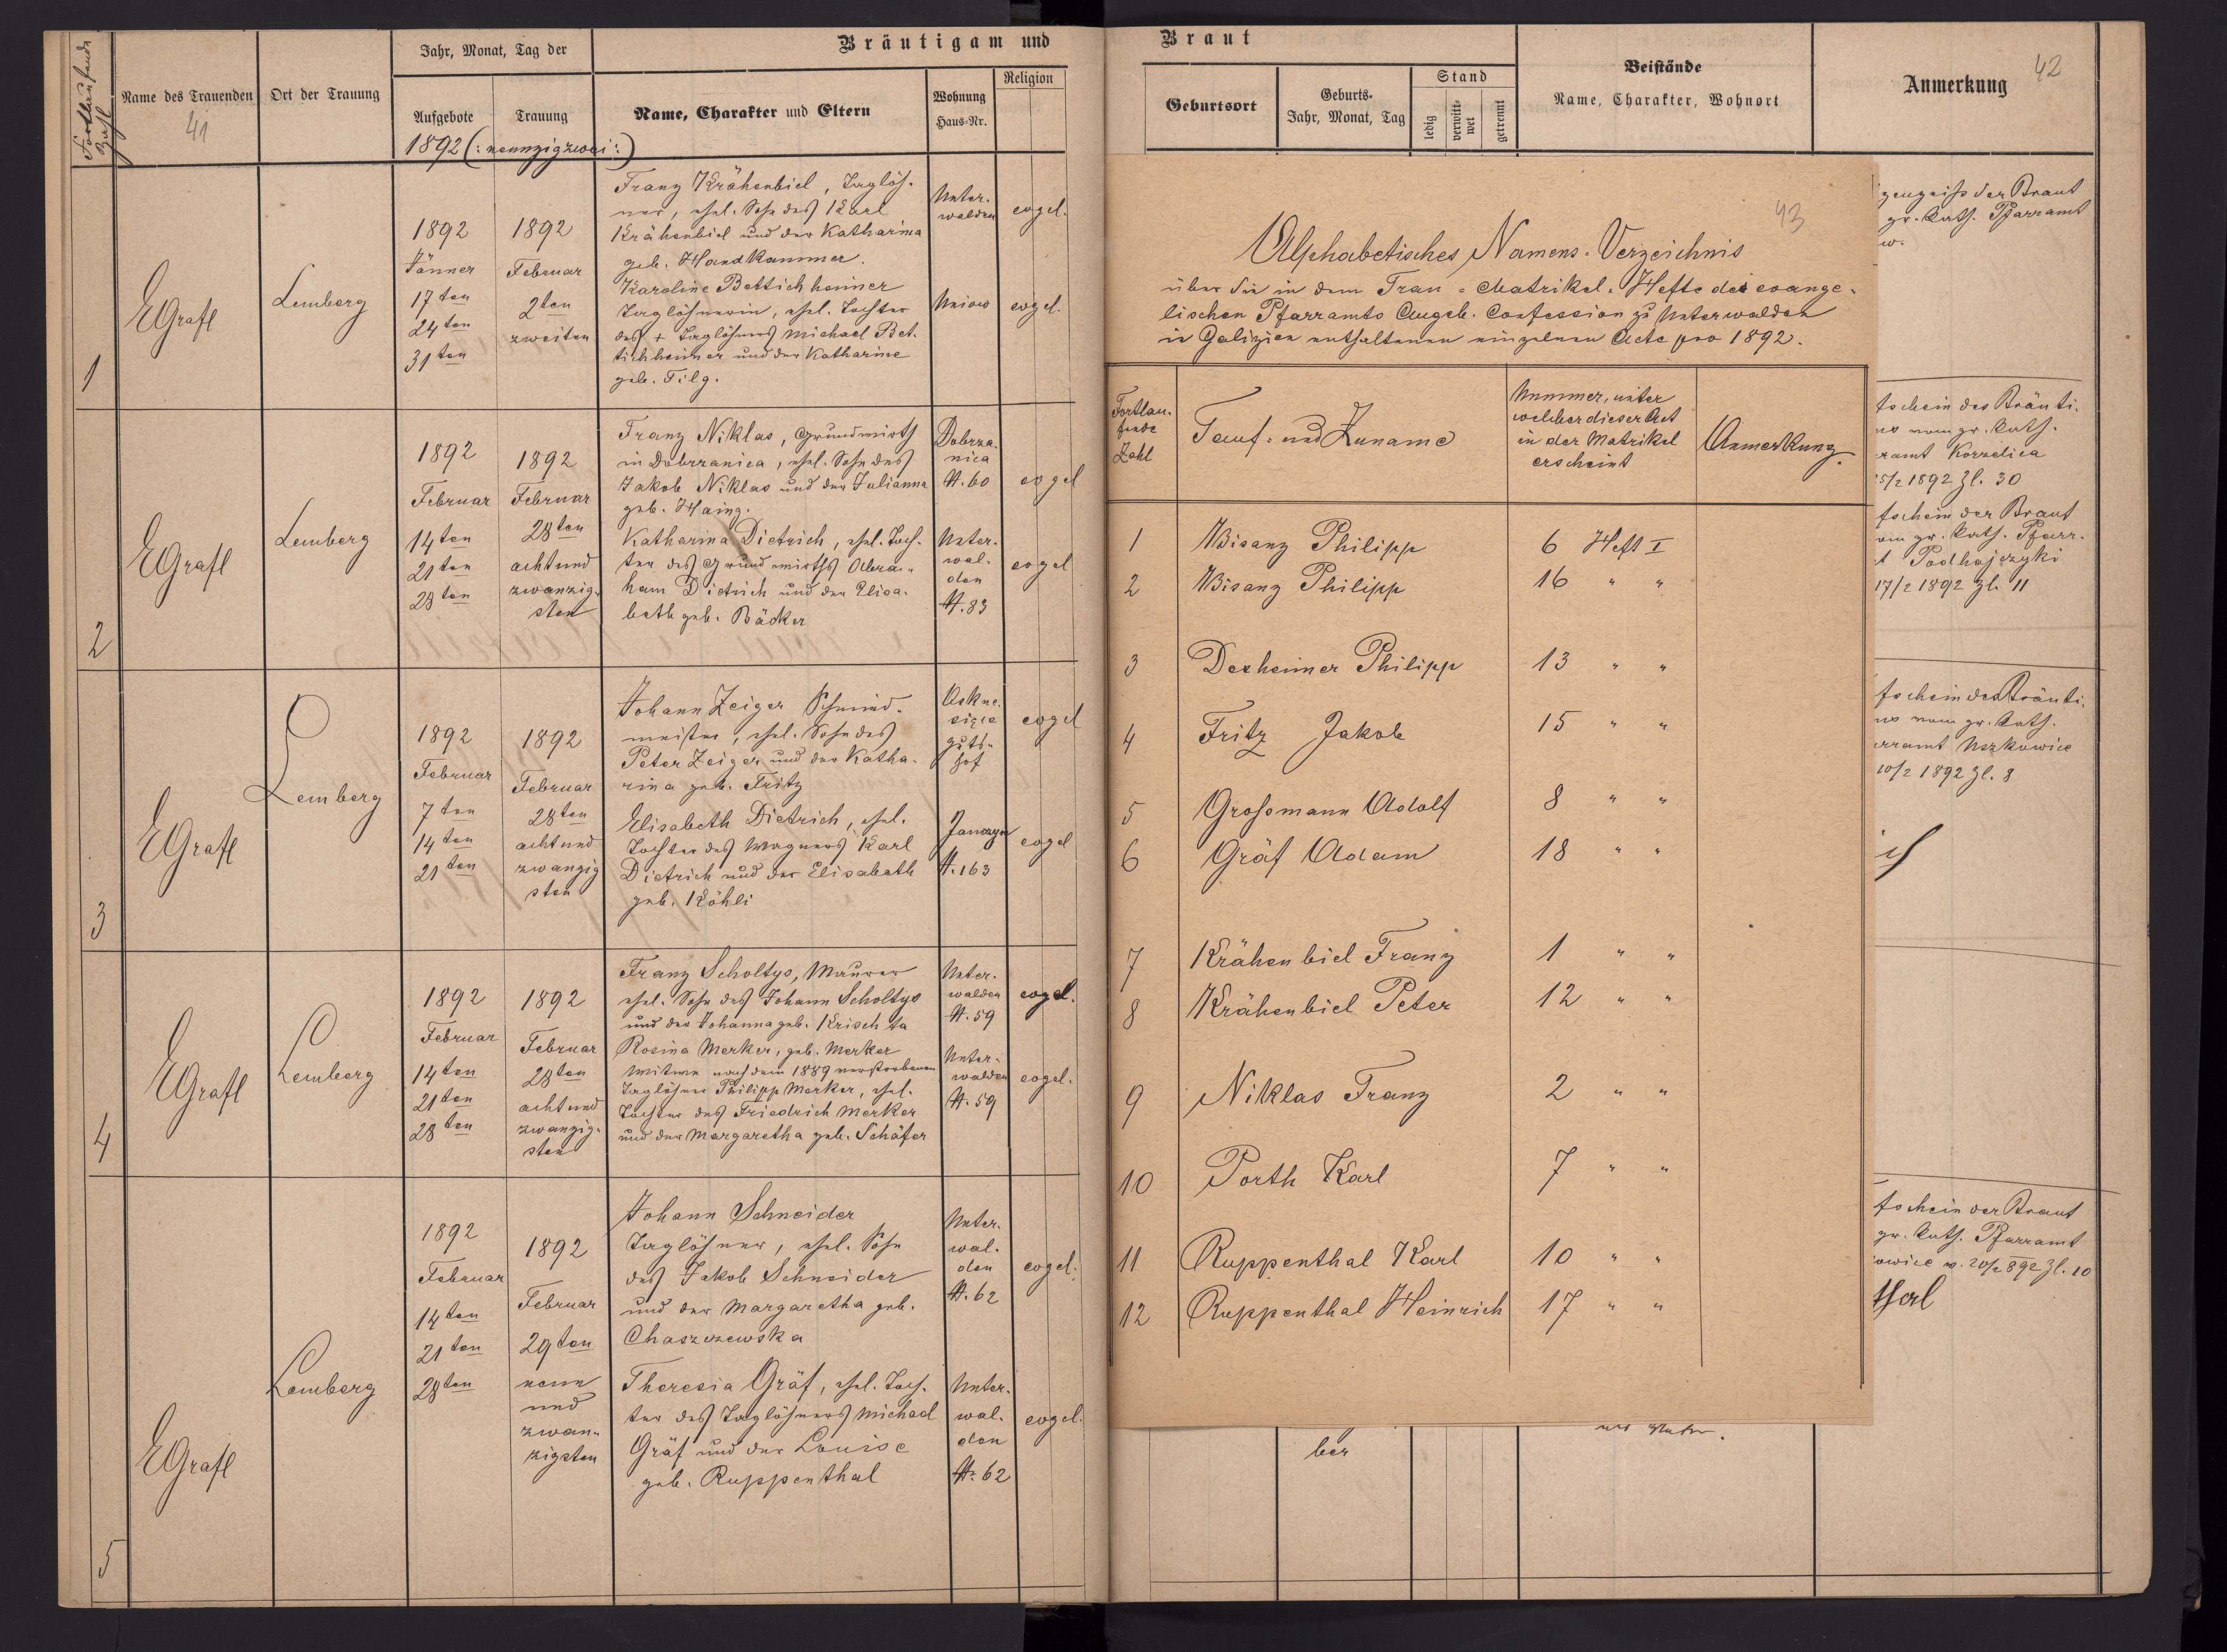 Fortlaufende
Zahl
Name des Trauenden
41
Ort der Trauung
Jahr, Monat, Tag der
Aufgebote
Trauung
1892 (: neunzigzwei :)
Bräutigam und
Name, Charakter und Eltern
Wohnung
Haus-Nr.
Religion
1
EGrafl
Lemberg
1892
Jänner
17ten
24ten
31ten
1892
Februar
2ten
zweiten
Franz Krähenbiel, Taglöh-
ner, ehel. Sohn des Karl
Krähenbiel und der Katharina
geb. Handkammer.
Unter-
walden
evgel.
Karoline Bettichheimer
Taglöhnerin, ehel. Tochter
des + Taglöhners Michael Bet-
tichheimer und der Katharine
geb. Filg.
Uniow
evgel.
2
EGrafl
Lemberg
1892
Februar
14ten
21ten
28ten
1892
Februar
28ten
achtund
zwanzig-
sten
Franz Niklas, Grundwirth
in Dobrzanica, ehel. Sohn des
Jakob Niklas und der Julianna
geb. Haing.
Dobrza-
nica
N. 60
evgel
Katharina Dietrich, ehel. Toch-
ter des Grundwirths Abra-
ham Dietrich und der Elisa-
beth geb. Bäcker
Unter-
wal-
den
N. 83
evgel
3
EGrafl
Lemberg
1892
Februar
7ten
14ten
21ten
1892
Februar
28ten
achtund
zwanzig
sten
Johann Zeiger Schmied-
meister, ehel. Sohn des
Peter Zeiger und der Katha-
rina geb. Fritz
Guts-
hof
evgel
Elisabeth Dietrich, ehel.
Tochter des Wagners Karl
Dietrich und der Elisabeth
geb. Köhli
Janczyn
N. 163
evgel
4
EGrafl
Lemberg
1892
Februar
14ten
21ten
28ten
1892
Februar
28ten
achtund
zwanzig-
sten
Franz Scholtys, Maurer
ehel. Sohn des Johann Scholtys
und der Johanna geb. Krischta
Unter-
walden
N. 59
evgel.
Rosina Merker, geb. Merker
Witwe nach dem 1889 verstorbenen
Taglöhner Philipp Merker, ehel.
Tochter des Friedrich Merker
und der Margaretha geb. Schäfer
Unter-
walden
N. 59
evgel.
5
EGrafl
Lemberg
1892
Februar
14ten
21ten
28ten
1892
Februar
29ten
neun
und
zwan-
zigsten
Johann Schneider
Taglöhner, ehel. Sohn
des Jakob Schneider
und der Margaretha geb.
Chaszczewska
Unter-
wal-
den
N. 62
evgel.
Theresia Gräf, ehel. Toch-
ter des Taglöhners Michael
Gräf und der Louise
geb. Ruppenthal
Unter-
wal-
den
N. 62
evgel.
Braut
Geburtsort
Geburts-
Jahr, Monat, Tag
Stand
ledig
verwitt-
wet
getrennt
Beistände
Name, Charakter, Wohnort
Anmerkung
42
43
Alphabetisches Namens-Verzeichnis
über die in dem Trau-Matrikel-Hefte des evange-
lischen Pfarramts Augsb. Confession zu Unterwalden
in Galizien enthaltenen einzelnen Acte pro 1892.
Fortlau-
fende
Zahl
Tauf- und Zuname
Nummer, unter
welcher dieser Act
in der Matrikel
erscheint
Anmerkung.
1 Bisanz Philipp 6 Heft I
2 Bisanz Philipp 16 " "
3 Dexheimer Philipp 13 " "
4 Fritz Jakob 15 " "
5 Grossmann Adolf 8 " "
6 Gräf Adam 18 " "
7 Krähenbiel Franz 1 " "
8 Krähenbiel Peter 12 " "
9 Niklas Franz 2 " "
10 Porth Karl 7 " "
11 Ruppenthal Karl 10 " "
12 Ruppenthal Heinrich 17 " "
ber
zeugniss der Braut
gr. kath. Pfarramt
w.
fschein des Bräuti-
ms vom gr. kath.
rramt Korzelica
15/2 1892 Zl. 30
fschein der Braut
vom gr. kath. Pfarr-
t Podhajczyki
17/2 1892 Zl. 11
fschein des Bräuti-
ms vom gr. kath.
rramt Uszkowice
10/2 1892 Zl. 8
ch
fschein der Braut
gr. kath. Pfarramt
owice v. 20/2 892 Zl. 10
thal